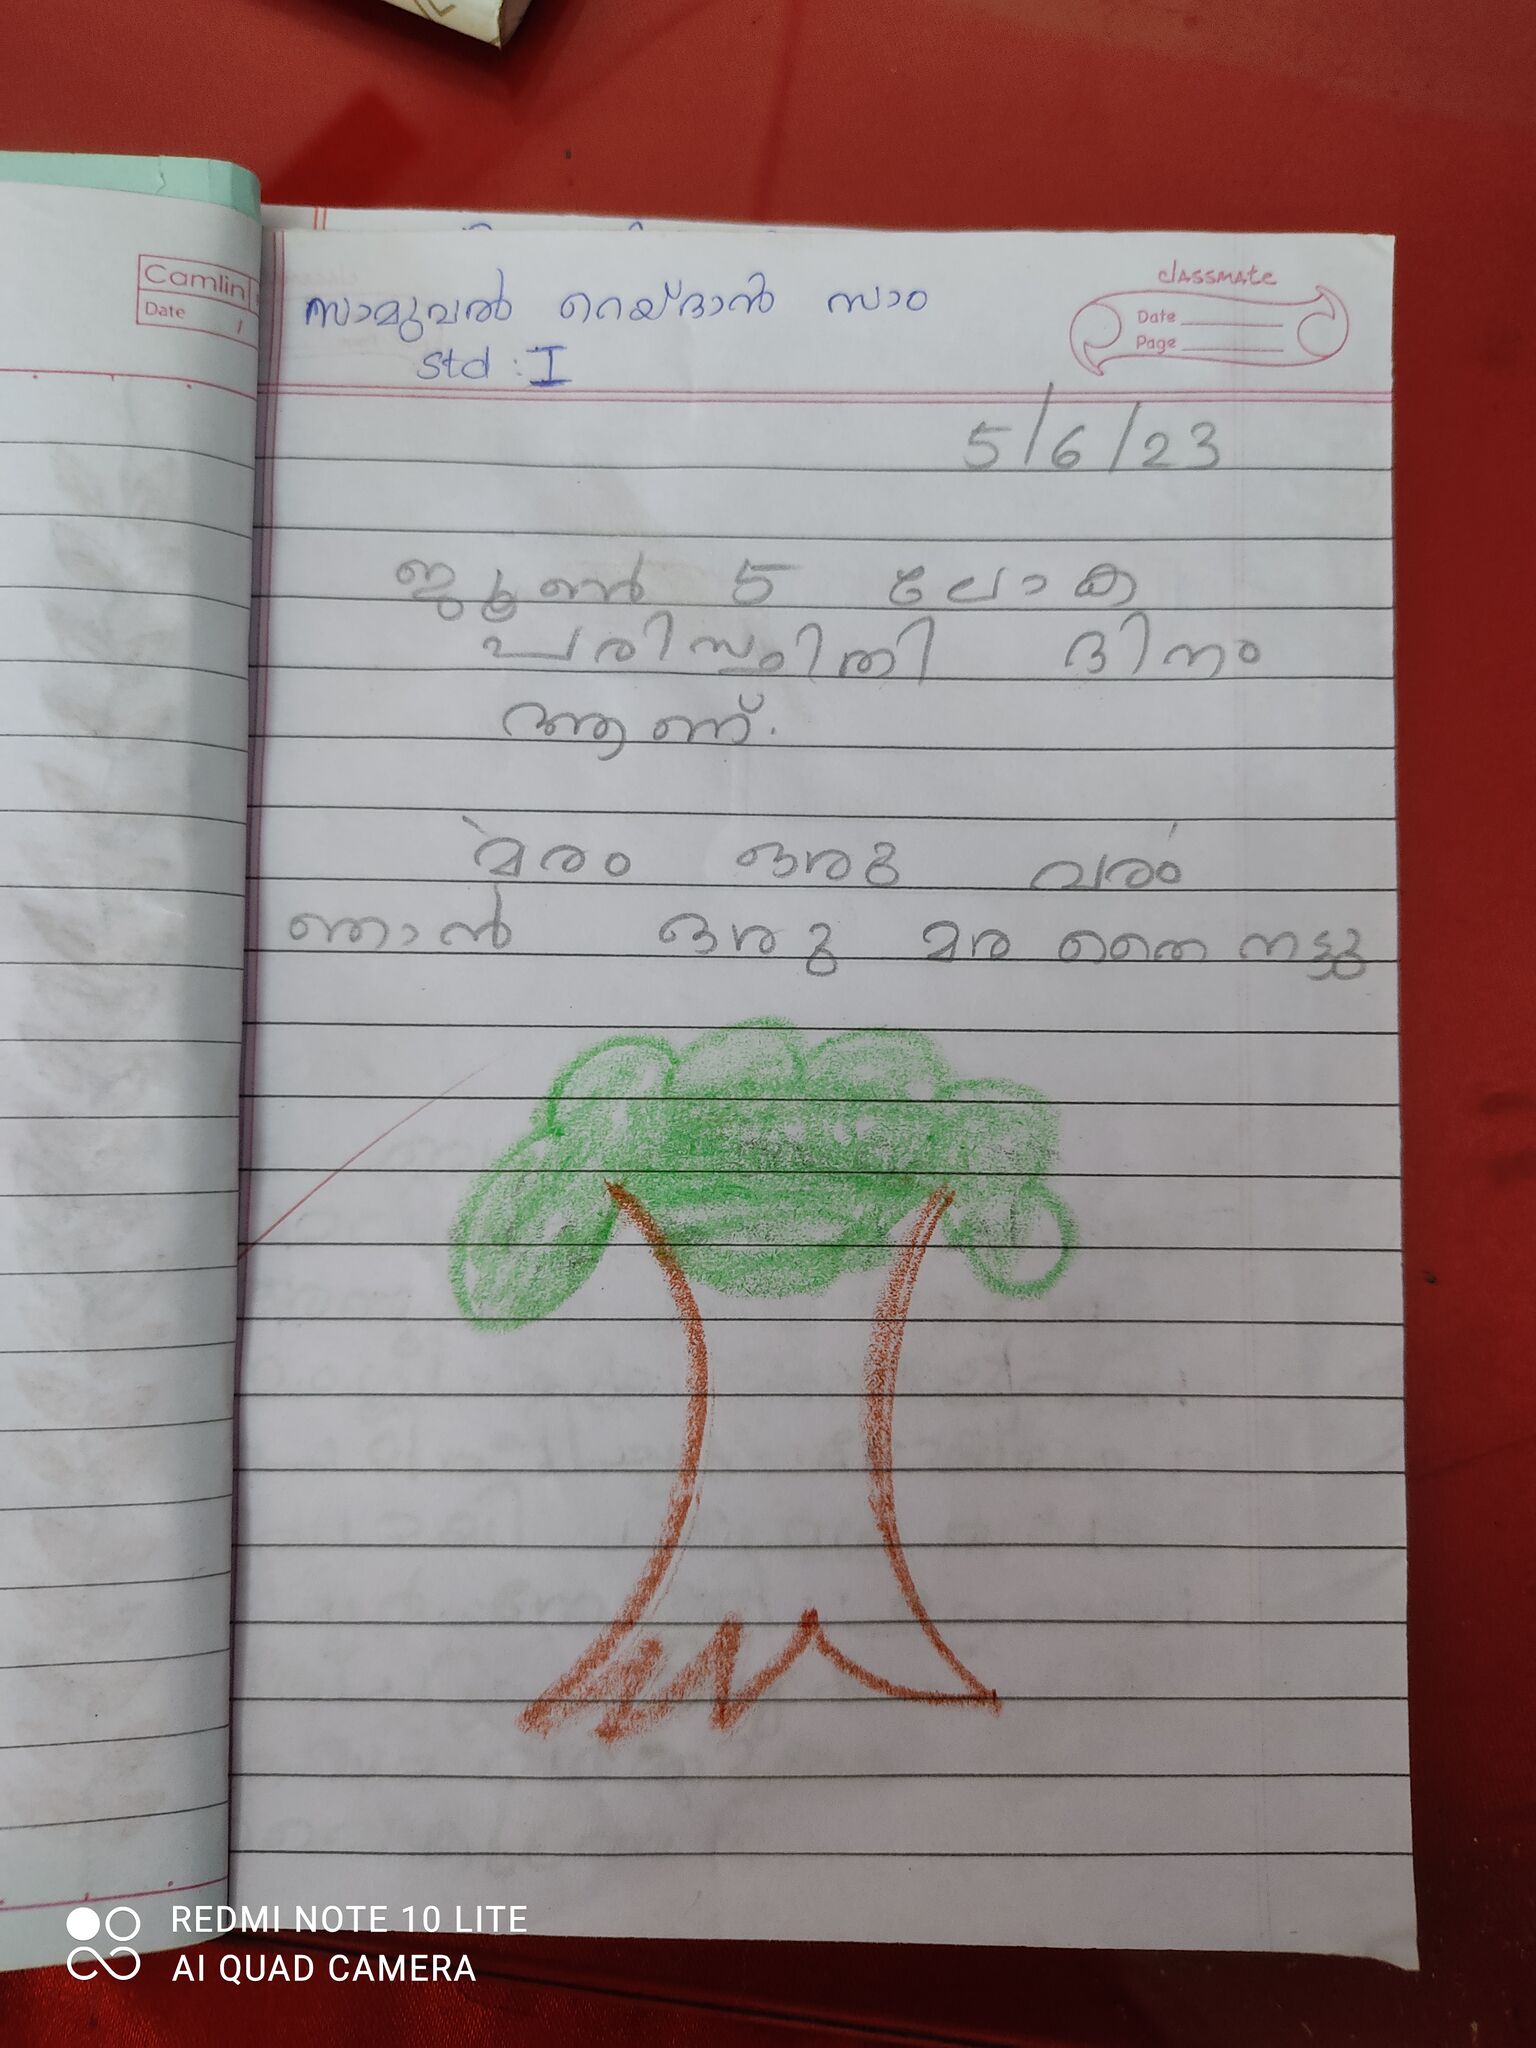 Camlin
Date
സാമുവൽ റെയ്ദാൻ സാം
Std : I
classmate
Date
Page
5/6/23
ജൂൺ 5 ലോക
പരിസ്ഥിതി ദിനം
ആണ്.
മരം ഒരു വരം
ഞാൻ ഒരു മര തൈ നട്ടു
REDMI NOTE 10 LITE
AI QUAD CAMERA